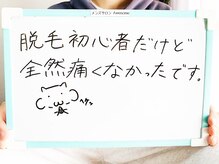 脱毛初心者だけど
全然痛くなかったです。